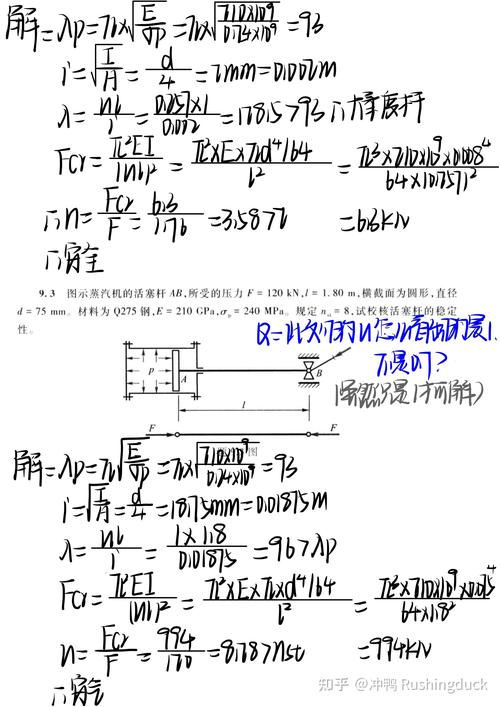 解=λp=π√E/σp=π√210×10⁹/0.24×10⁹=93
i=√I/A=d/4=2mm=0.002m
λ=μl/i=0.257×1/0.002=128.5>93 ∴大柔度杆
Fcr=π²EI/(μl)²=π²×E×πd⁴/64/l²=π³×210×10⁹×0.008⁴/64×(0.257)²
∴n=Fcr/F=6.3/1.76=3.58>2 =6.3kN
∴安全
9.3 图示蒸汽机的活塞杆 AB,所受的压力 F=120 kN,l=1.80 m,横截面为圆形,直径
d=75 mm。材料为 Q275 钢,E=210 GPa,σp=240 MPa。规定 nst=8,试校核活塞杆的稳定
性。
Q=此处的μ怎么看出的是1
不是0.7?
(虽然只是1有解)
p
A
B
l
F
F
图
解=λp=π√E/σp=π√210×10⁹/0.24×10⁹=93
i=√I/A=d/4=18.75mm=0.01875m
λ=μl/i=1×1.8/0.01875=96>λp
Fcr=π²EI/(μl)²=π²×E×π×d⁴/64/l²=π³×210×10⁹×0.075⁴/64×1.8²
n=Fcr/F=994/120=8.28>nst =994kN
∴安全
知乎 @冲鸭 Rushingduck